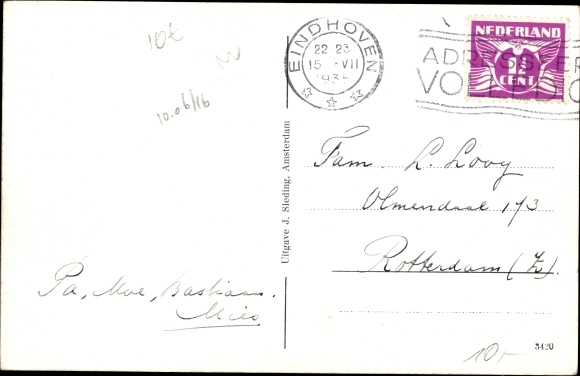 10 €
10-06/16
EINDHOVEN
22 23
15 VII
NEDERLAND
CENT
Uitgave J. Sleding, Amsterdam
Fam. L. Looy
Olmendaal 173
Rotterdam (Z).
Pa, Moe, Bastiaan.
Mies
10-
3420